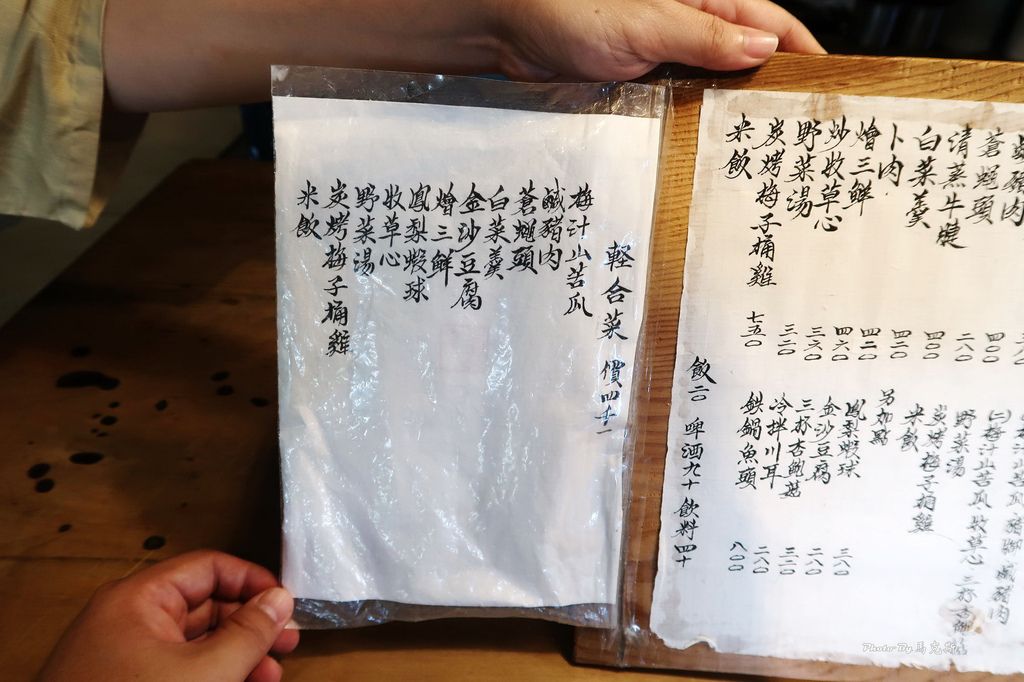 軽合菜 價四千
梅汁山苦瓜
鹹豬肉
蒼蠅頭
白菜羹
金沙豆腐
燴三鮮
鳳梨蝦球
牧草心
野菜湯
炭烤梅子桶雞
米飲
豬肉 四〇〇
蒼蠅頭 二八〇
清蒸牛腱 四〇〇
白菜羹 四二〇
卜肉 四二〇
燴三鮮 四六〇
炒牧草心 三六〇
野菜湯 三二〇
炭烤梅子桶雞 七五〇
米飲
(二)梅汁山苦瓜 豬腳 鹹豬肉
野菜湯 牧草心 三杯杏鮑
炭烤梅子桶雞
米飲
另加點
鳳梨蝦球 三八〇
金沙豆腐 二八〇
三杯杏鮑菇 三二〇
冷拌川耳 二八〇
鉄鍋魚頭 八〇〇
飯二〇 啤酒九十 飲料四十
Photo By 馬克